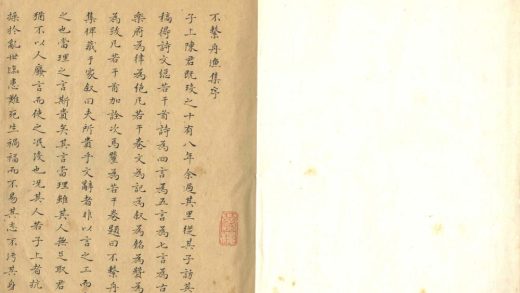 不繫舟漁集序
子上陳君既歿之十有八年余過其里從其子訪其
稿得詩文總若干首詩為四言為五言為七言為古
樂府為律為絕凡若干卷文為記為叙為銘為贊為
為跋凡若干首加詮次為釐為若干卷題曰不繫舟
集俾藏于家叙曰夫所貴乎文辭者非以言之工而
之也當理之言斯貴矣其言當理雖其人無足取君
猶不以人廢言而使之泯後也况其人若子上者抗
操於亂世臨患難死生禍福而不易其志不汚其身